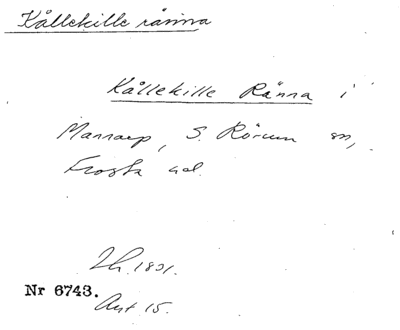 Källekille ränna
Källekille Ränna i
Mannarp, S. Rörum sn,
Frosta hd.
1831.
Nr 6743.
Akt 15.